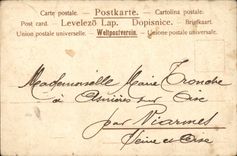 Carte postale. – Postkarte. – Cartolina postale.
Post card. – Levelező Lap. – Dopisnice. – Briefkaart.
Union postale universelle. Weltpostverein. – Unione postale universale.
Mademoiselle Marie Tronche
à Asnières sur Oise
par Viarmes
Seine et Oise